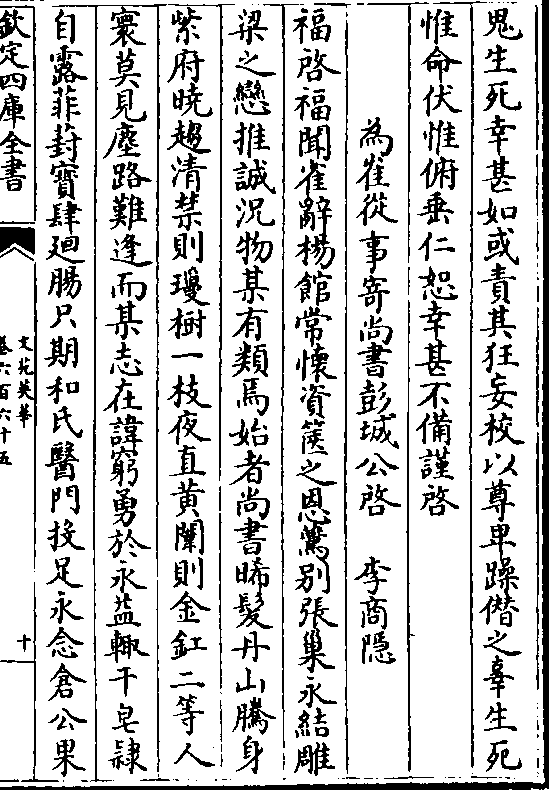 鬼生死幸甚如或責其狂妄校以尊卑躁僭之辜生死
惟命伏惟俯垂仁恕幸甚不備謹啓
為崔從事寄尚書彭城公啓　李商隱
福啓福聞雀辭楊館常懷資篋之恩鷰別張巢永結雕
梁之戀推誠况物某有類焉始者尚書晞髮丹山騰身
紫府曉趨清禁則瓊樹一枝夜直黄闈則金釭二等人
寰莫見塵路難逢而某志在諱窮勇於求益輙干皂隷
自露菲葑寶肆廻腸只期和氏醫門投足永念倉公果
欽定四庫全書
文苑英華
卷六百六十五
十